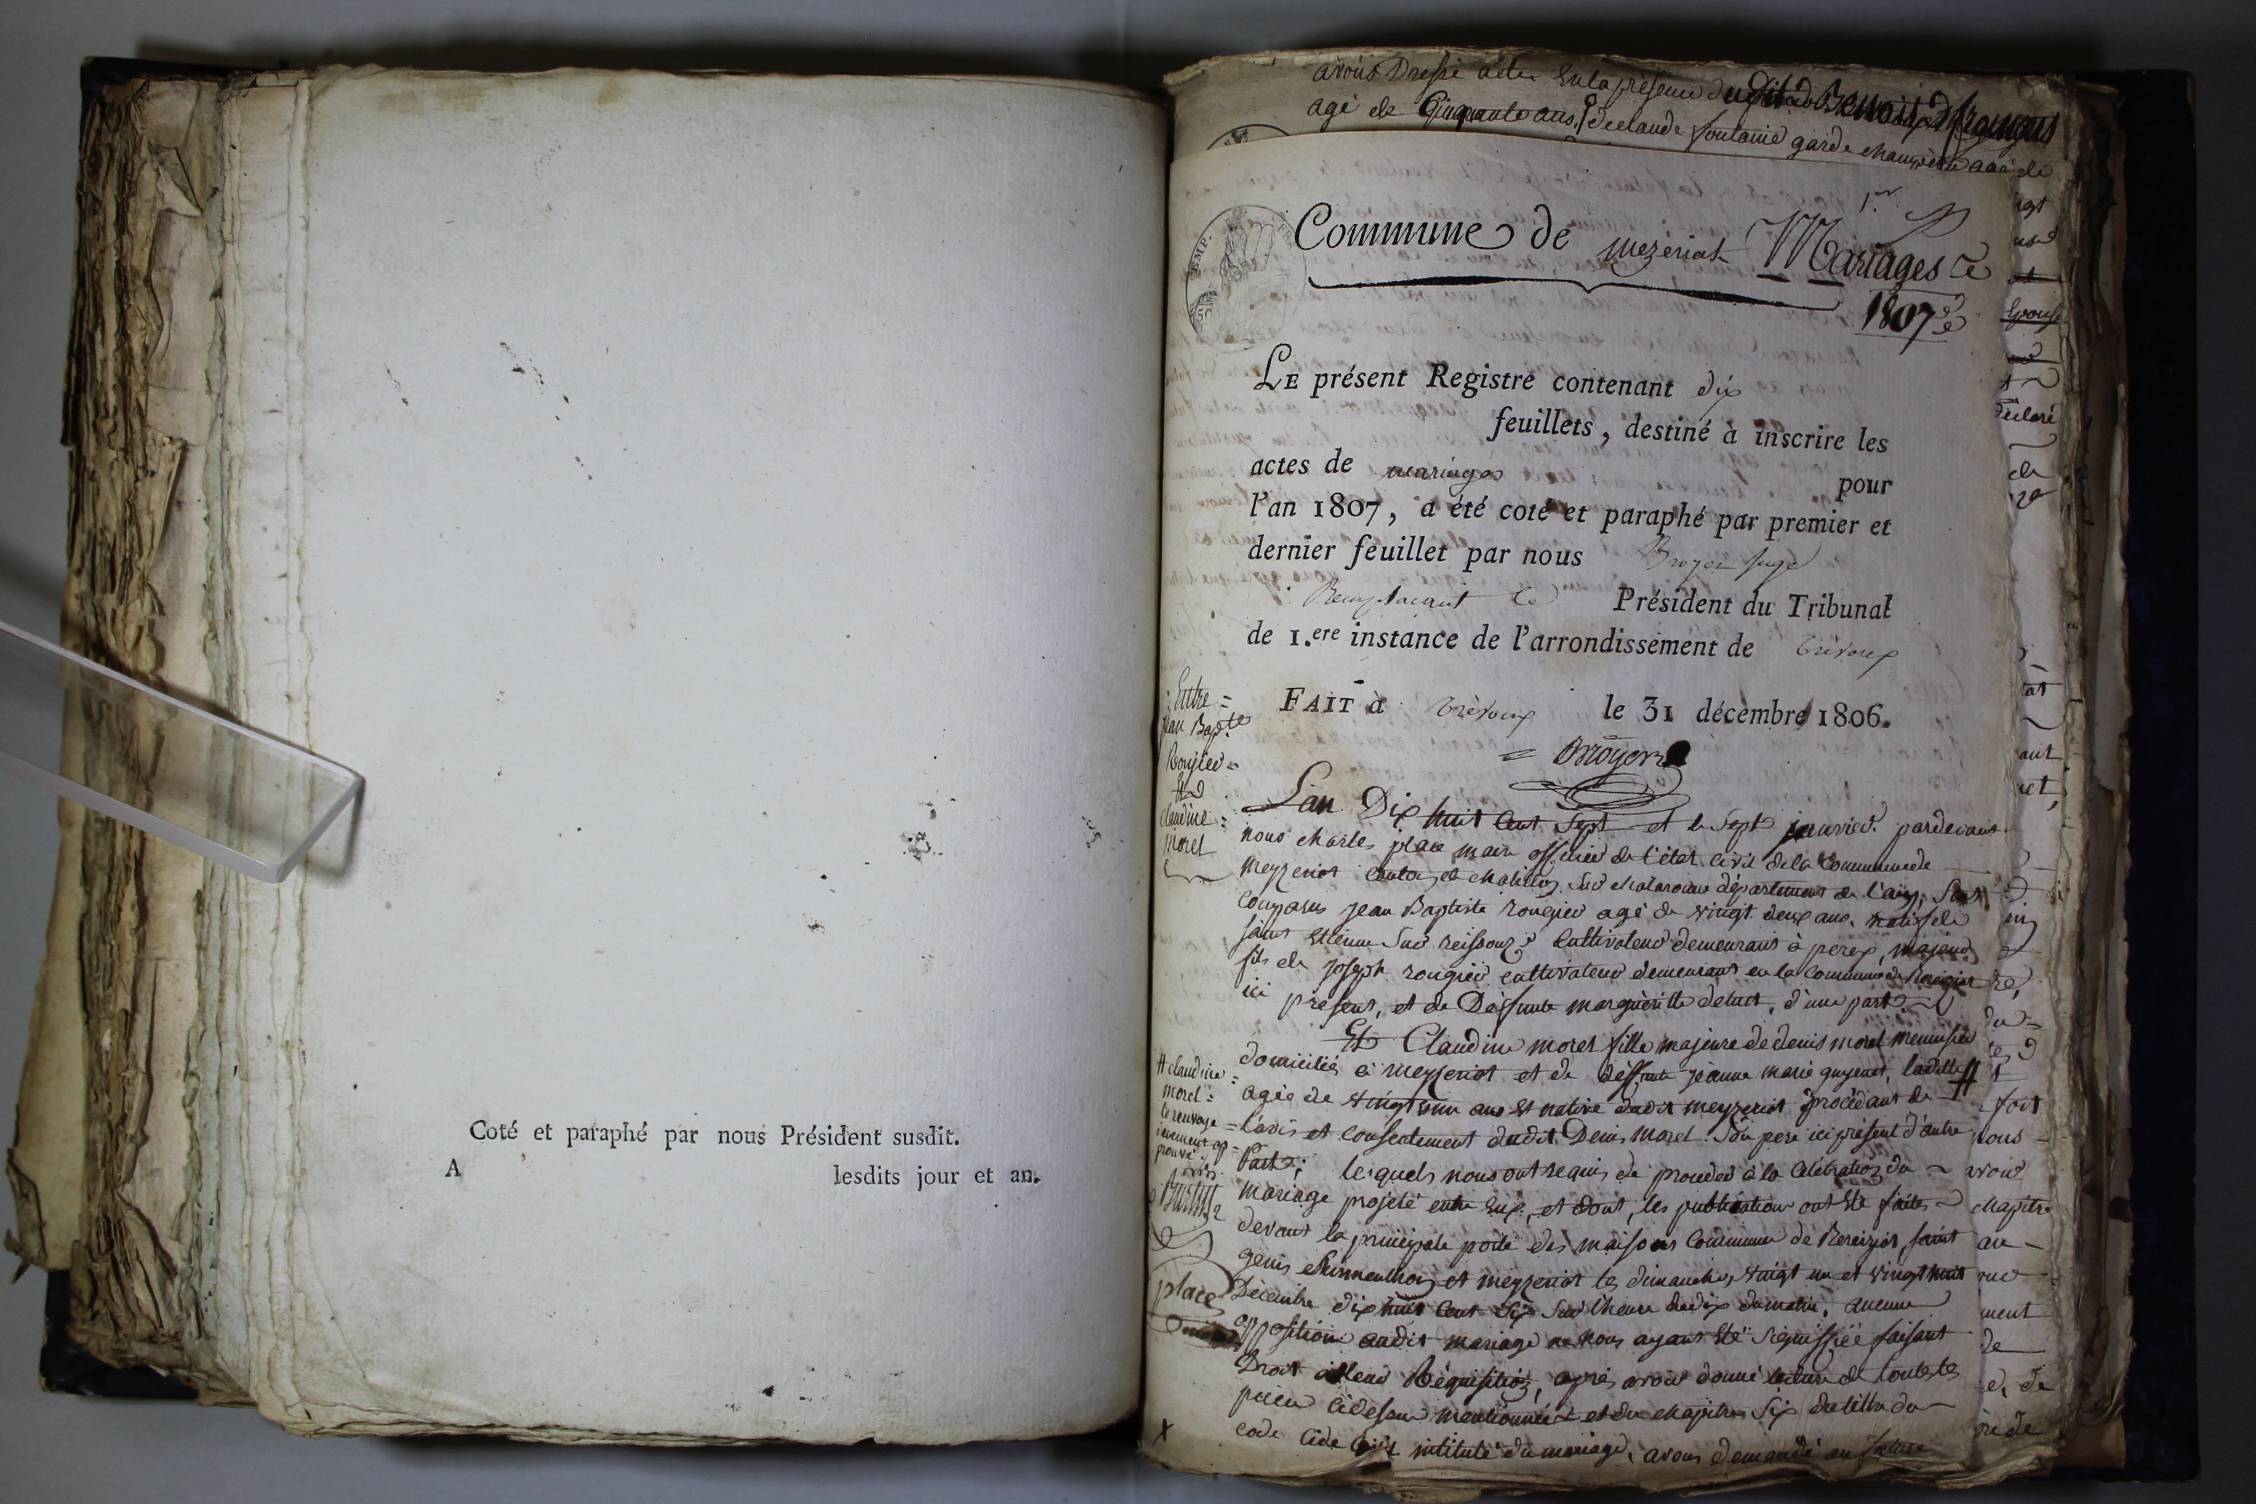 Coté et paraphé par nous Président susdit.
A lesdits jour et an.
avons Dressé acte en la presence dudit Benoit
agé de Cinquante ans, declaude fontaine garde champêtre agé de
EMP.
Commune de mezeriat Mariages
1807
LE présent Registre contenant dix
feuillets, destiné à inscrire les
actes de mariages pour
l'an 1807, a été coté et paraphé par premier et
dernier feuillet par nous Broyer juge
Remplacant le Président du Tribunal
de 1.ere instance de l'arrondissement de trévoux
FAIT à trévoux le 31 décembre 1806.
Broyer
Entre =
jean Bap.te
Rougier =
Et
claudine =
morel
Lan Dix huit Cent Sept et le Sept janvier pardevant
nous charles place maire officier de l'état civil de la Commune de
meyzeriat canton de chatillon sur chalaronne département de l'ain, Sont
Comparus jean Baptiste rougier agé de vingt deux ans natif de
saint Etienne Sur reissouze Cultivateur demeurant à perex, majeur
fils de joseph rougier cultivateur demeurant en la commune de
ici présent, et de Deffunte margueritte deluct, d'une part
Et Claudine morel fille majeure de denis morel menuisier
domicilié à meyzeriat et de deffunte jeanne marie guyenet, ladite #
agée de vingt un ans et native dudit meyzeriat procédant de
l'avis et consentement dudit Denis morel Son pere ici présent d'autre
Part; lesquels nous ont requis de proceder à la Célébration du
mariage projeté entre Eux, et dont les publication ont Eté faites
devant la principale porte des maisons Commune de saint
genis et meyzeriat les dimanches vingt un et vingt huit
Décembre dix huit Cent Six Sur l'heure de dix du matin, aucune
opposition audit mariage ne nous ayant Eté signiffiée faisant
Droit à leur Réquisition, après avoir donné lecture de toutes les
piéces cidessus mentionnées et du chapitre Six du titre du
code Civil intitulé du mariage, avons demandé au future
# claudine =
morel =
place
X
épouse
déclaré
de
tat
ant
fort
nous
avoir
chapitre
au
ment
de